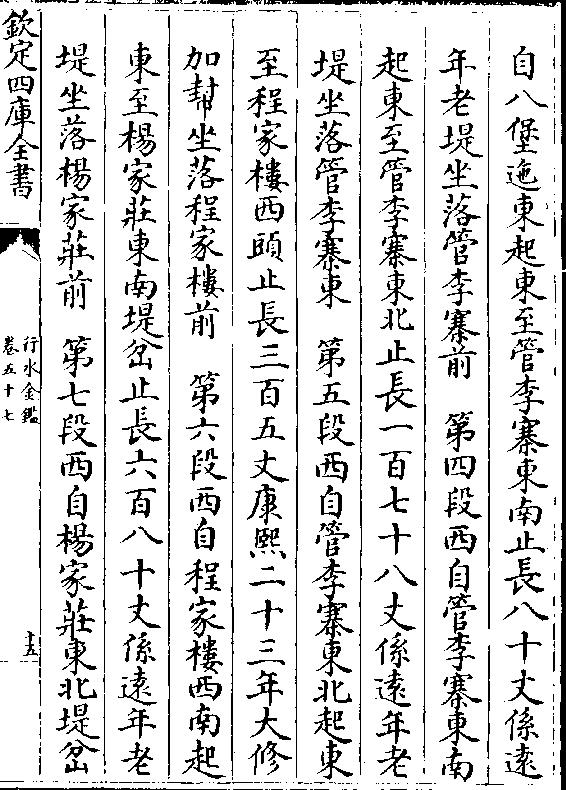 自八堡迤東起東至管李寨東南止長八十丈係遠
年老堤坐落管李寨前　第四段西自管李寨東南
起東至管李寨東北止長一百七十八丈係遠年老
堤坐落管李寨東　第五段西自管李寨東北起東
至程家樓西頭止長三百五丈康熙二十三年大修
加幇坐落程家樓前　第六段西自程家樓西南起
東至楊家莊東南堤岔止長六百八十丈係遠年老
堤坐落楊家莊前　第七段西自楊家莊東北堤岔
欽定四庫全書
行水金鑑
卷五十七
十五